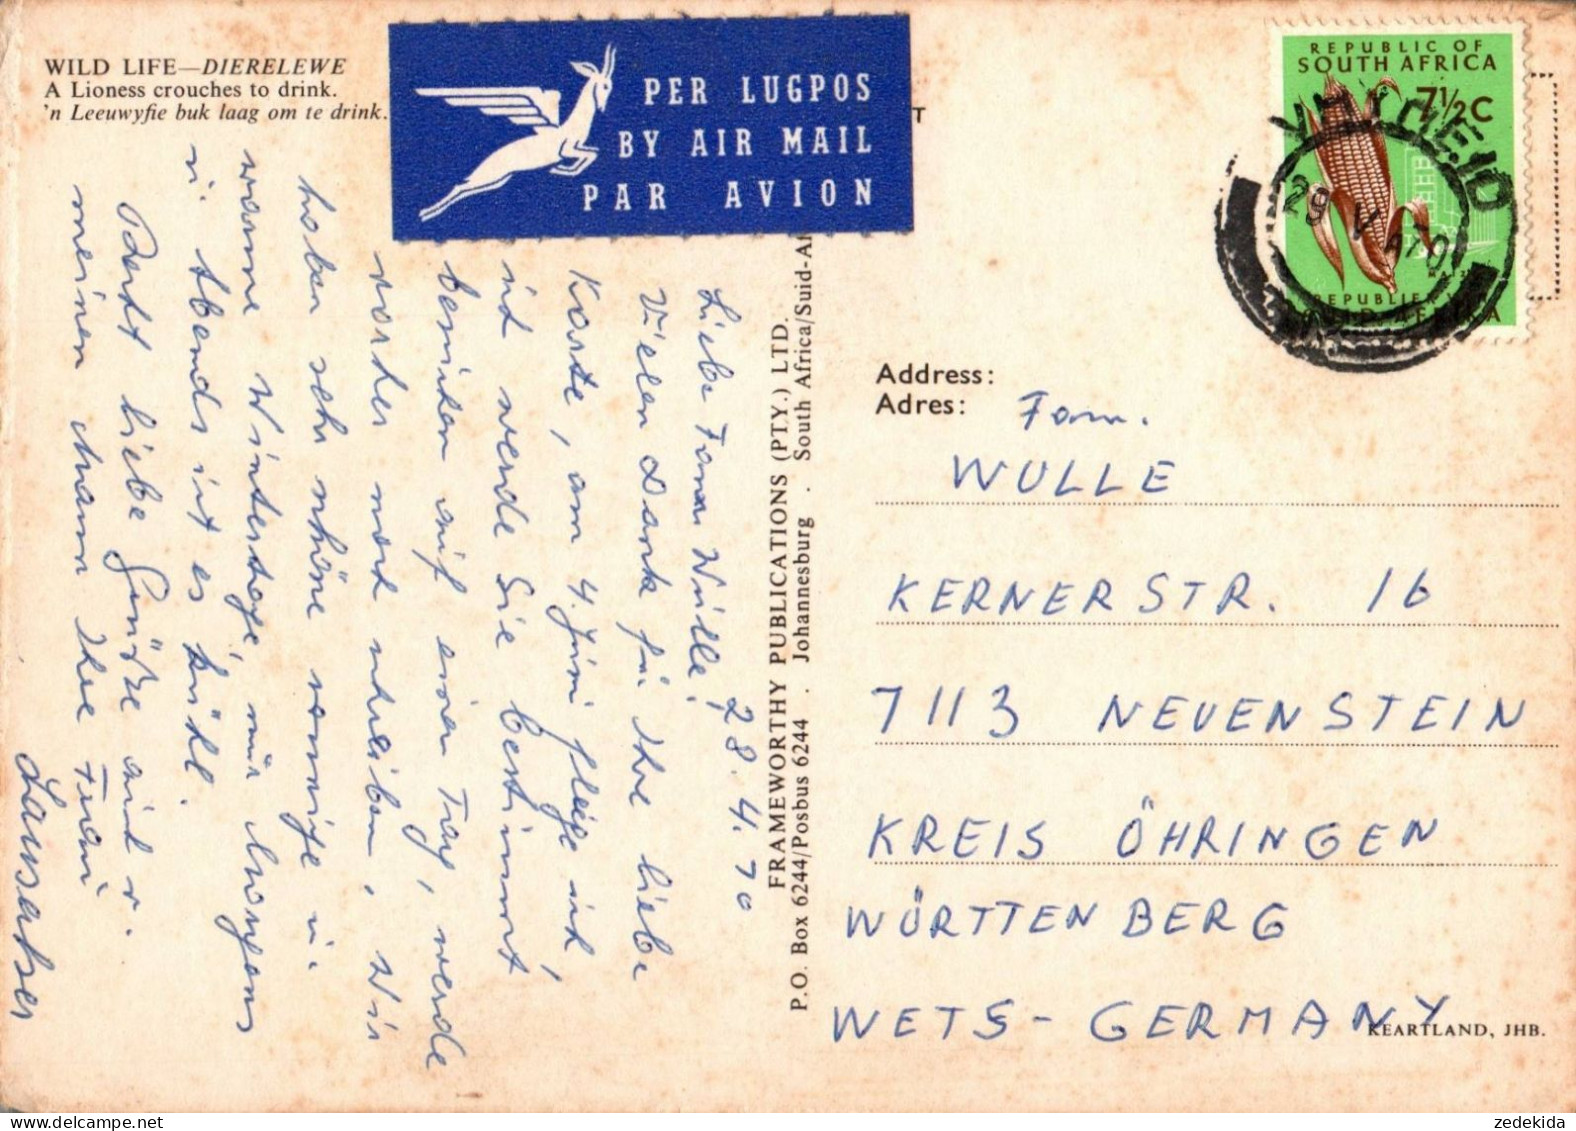 WILD LIFE—DIERELEWE
A Lioness crouches to drink.
'n Leeuwyfie buk laag om te drink.
PER LUGPOS
BY AIR MAIL
PAR AVION
REPUBLIC OF
SOUTH AFRICA
7½C
REPUBLIEK VAN
SUID-AFRIKA
VRYHEID
29 V 70
Address:
Adres:
Fam.
WULLE
KERNERSTR. 16
7113 NEUENSTEIN
KREIS ÖHRINGEN
WÜRTTENBERG
WETS-GERMANY
KEARTLAND, JHB.
FRAMEWORTHY PUBLICATIONS (PTY.) LTD.
P.O. Box 6244/Posbus 6244 . Johannesburg . South Africa/Suid-Af
28.4.70
Liebe Familie Wülle!
Vielen Dank für Ihre liebe
Karte, am 4. Juni fliege ich,
ich werde Sie bestimmt
besuchen auf einen Tag, werde
vorher noch schreiben. Wir
haben sehr schöne sonnige u.
warme Wintertage, nur Morgens
u. Abends ist es kühl.
Recht liebe Grüße auch v.
meinen Mann Ihre Frau
zedekida